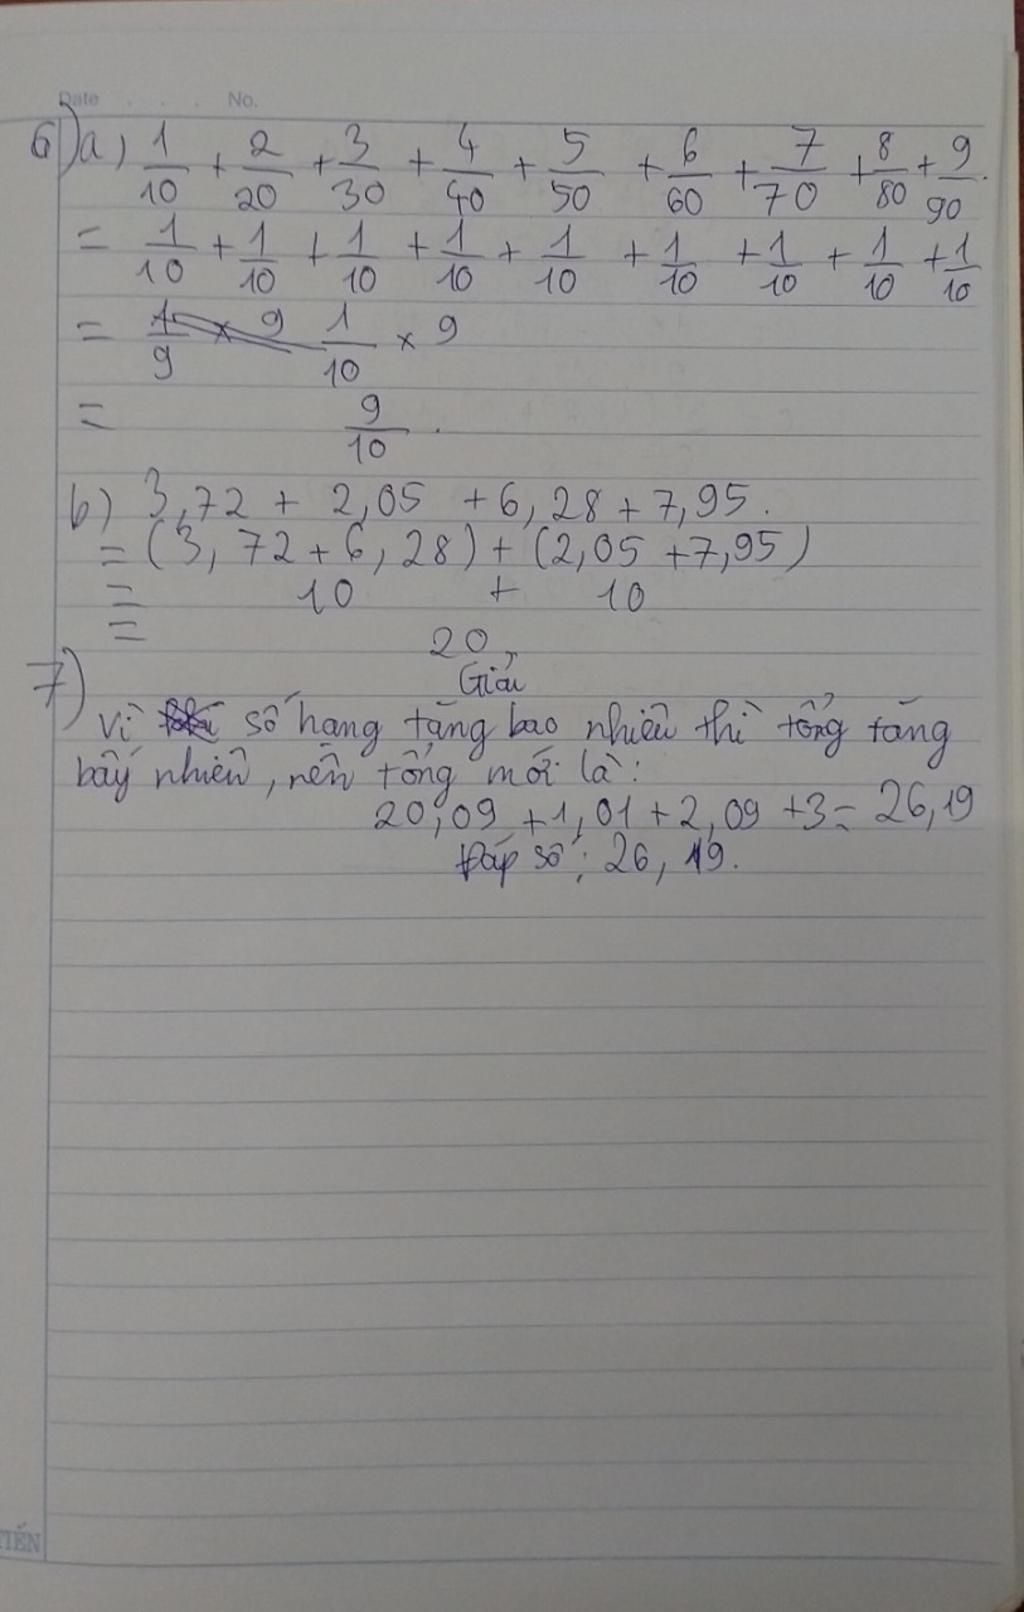 Date . . . No.
6) a, 1/10 + 2/20 + 3/30 + 4/40 + 5/50 + 6/60 + 7/70 + 8/80 + 9/90.
= 1/10 + 1/10 + 1/10 + 1/10 + 1/10 + 1/10 + 1/10 + 1/10 + 1/10
= 1/9 x 9 1/10 x 9
= 9/10.
b) 3,72 + 2,05 + 6,28 + 7,95.
= (3,72 + 6,28) + (2,05 + 7,95)
= 10 + 10
= 20,
7) Giải
Vì số hạng tăng bao nhiêu thì tổng tăng
bấy nhiên, nên tổng mới là:
20,09 + 1,01 + 2,09 + 3 = 26,19
Đáp số: 26,19.
TIẾN